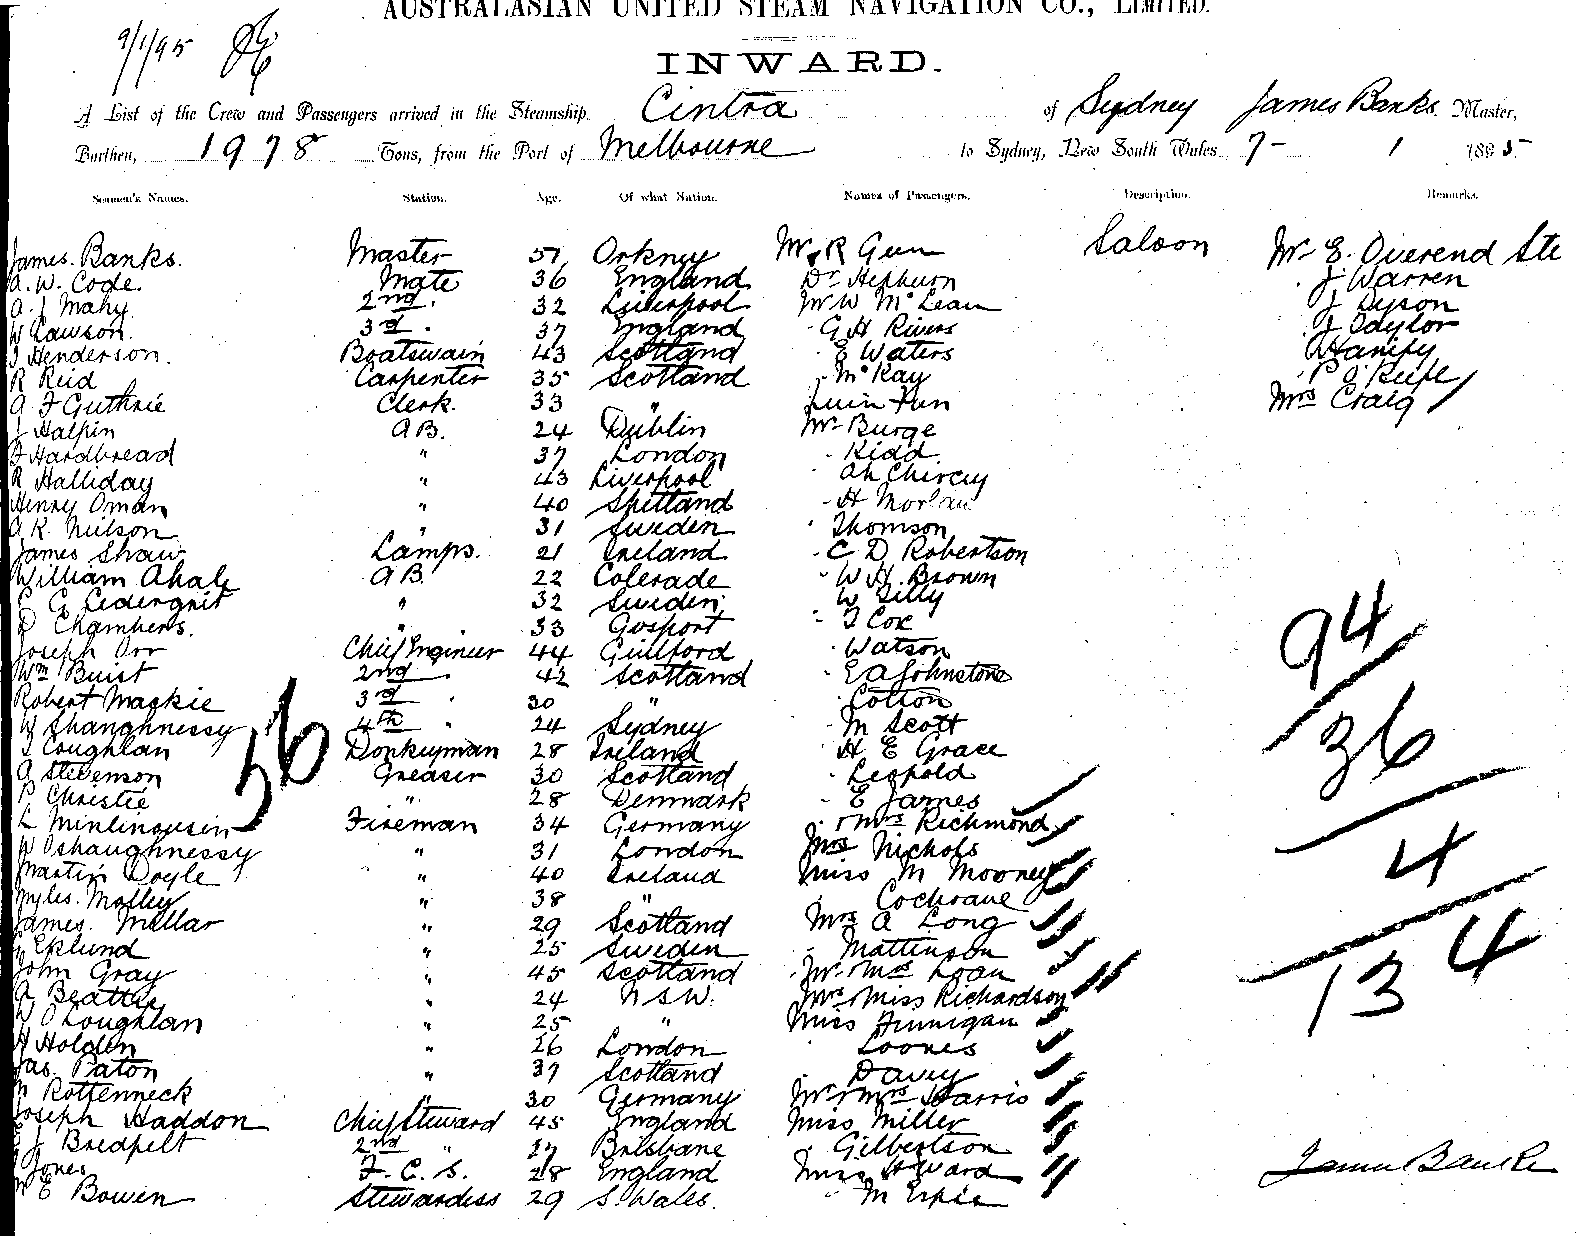 AUSTRALASIAN UNITED STEAM NAVIGATION CO., LIMITED.
9/1/95
INWARD.
A List of the Crew and Passengers arrived in the Steamship Cintra of Sydney James Banks Master,
Burthen, 1978 Tons, from the Port of Melbourne to Sydney, New South Wales 7- 1 1895
Seamen's Names. Station. Age. Of what Nation. Names of Passengers. Description. Remarks.
James Banks. Master 57 Orkney Mr R Gunn Saloon Mr E. Overend Ste
A. W. Code. Mate 36 England Dr Hepburn J. Warren
A. J Mahy. 2nd. 32 Liverpool Mr W McLean J Dyson
W Lawson. 3rd. 37 England G H Rivers J Taylor
Henderson. Boatswain 43 Scotland E Waters Hanify
R Reid Carpenter 35 Scotland McKay P O'Keefe
A F Guthrie Clerk. 33 " Fun Mrs Craig
J Halpin AB. 24 Dublin Mr Burge
F Hardbread " 37 London Kidd
R Halliday " 43 Liverpool Ah
Henry Oman " 40 Shetland H
A K. Neilson " 31 Sweden Thomson
James Shaw Lamps. 21 Ireland C D Robertson
William AB. 22 Colerade W H. Brown
" 32 Sweden W Tilly
Chambers. " 33 Gosport T Cox
Joseph Orr Chief Engineer 44 Guilford Watson
Wm Buist 2nd 42 Scotland E A Johnstone
Robert Mackie 3rd " 30 " Cotton
W Shanghnessy 4th " 24 Sydney M Scott
Coughlan Donkeyman 28 Ireland H E Grace
A Stevenson Greaser 30 Scotland Leopold
P Christie " 28 Denmark E James
Fireman 34 Germany + Mrs Richmond
W Oshaughnessy " 31 London Mrs Nichols
Martin Doyle " 40 Ireland Miss M Mooney
Myles. " 38 " Cochrane
James. Mellar " 29 Scotland Mrs A Long
Eklund " 25 Sweden Mattinson
John Gray " 45 Scotland Mr + Mrs Loan
A Beattie " 24 N S W. Mrs + Miss Richardson
W O'Loughlan " 25 " Miss Finnigan
H Holden " 26 London Loones
Jas. Paton " 37 Scotland Davey
Rottenneck " 30 Germany Mr + Mrs Harris
Joseph Haddon Chief Steward 45 England Miss Miller
J Bredfelt 2nd " 27 Brisbane Gilbertson
Jones F. C. S. 28 England Miss Ward
E Bowen Stewardess 29 S. Wales. M
56
94
36
4
134
James Banks